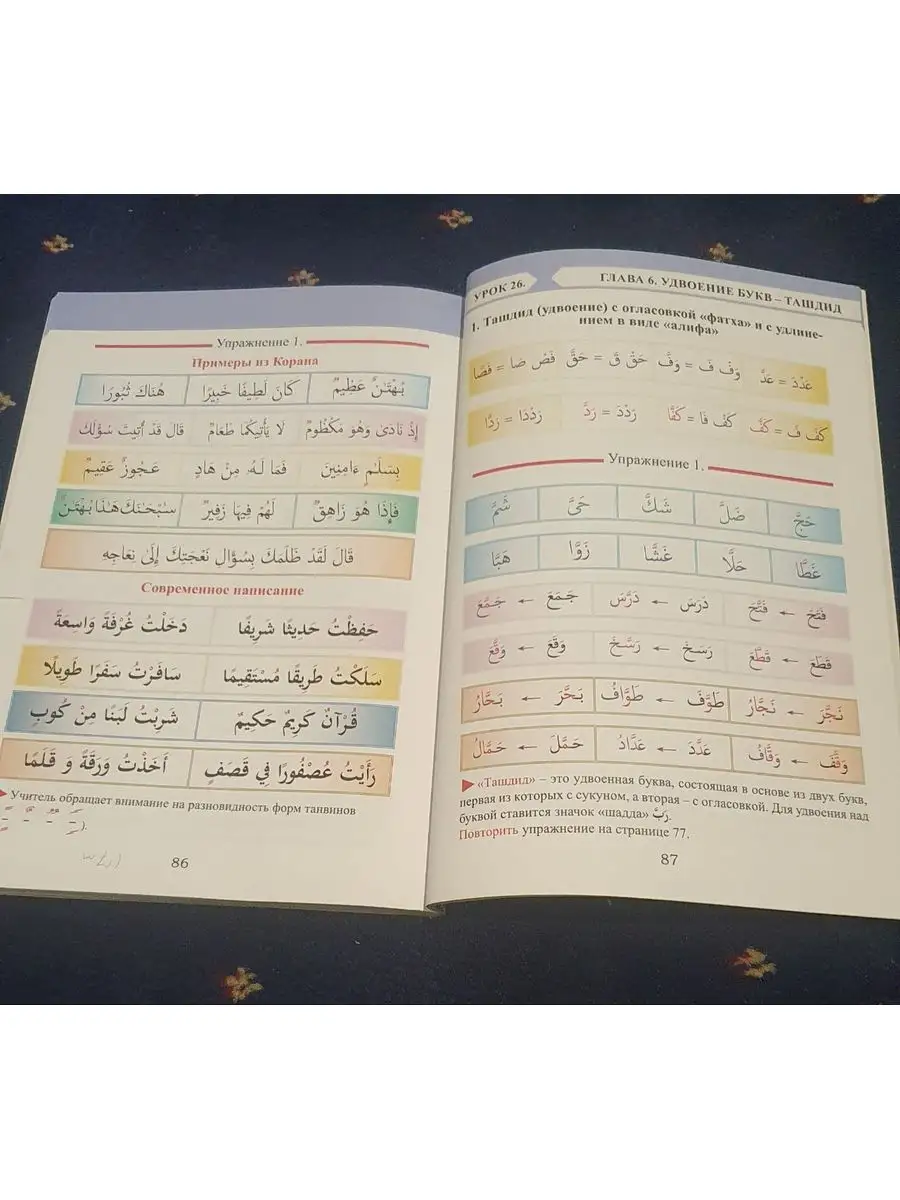 Упражнение 1.
Примеры из Корана
بُهْتَٰنٌ عَظِيمٌ كَانَ لَطِيفًا خَبِيرًا هُنَاكَ ثُبُورًا
إِذْ نَادَىٰ وَهُوَ مَكْظُومٌ لَا يَأْتِيكُمَا طَعَامٌ قَالَ قَدْ أُتِيتَ سُؤْلَكَ
بِسَلَٰمٍ ءَامِنِينَ فَمَا لَهُۥ مِنْ هَادٍ عَجُوزٌ عَقِيمٌ
فَإِذَا هُوَ زَاهِقٌ لَهُمْ فِيهَا زَفِيرٌ سُبْحَٰنَكَ هَٰذَا بُهْتَٰنٌ
قَالَ لَقَدْ ظَلَمَكَ بِسُؤَالِ نَعْجَتِكَ إِلَىٰ نِعَاجِهِ
Современное написание
حَفِظْتُ حَدِيثًا شَرِيفًا دَخَلْتُ غُرْفَةً وَاسِعَةً
سَلَكْتُ طَرِيقًا مُسْتَقِيمًا سَافَرْتُ سَفَرًا طَوِيلًا
قُرْآنٌ كَرِيمٌ حَكِيمٌ شَرِبْتُ لَبَنًا مِنْ كُوبٍ
رَأَيْتُ عُصْفُورًا فِي قَصَفٍ أَخَذْتُ وَرَقَةً وَ قَلَمًا
Учитель обращает внимание на разновидность форм танвинов
).
86
УРОК 26. ГЛАВА 6. УДВОЕНИЕ БУКВ – ТАШДИД
1. Ташдид (удвоение) с огласовкой «фатха» и с удлине-
нием в виде «алифа»
عَدْدَ = عَدَّ وَفْ فَ = وَفَّ حَقْ قَ = حَقَّ فَصْ صَا = فَصَّا
كَفْ فَ = كَفَّ كَفْ فَا = كَفَّا رَدْدَ = رَدَّ رَدْدَا = رَدَّا
Упражнение 1.
حَجَّ ضَلَّ شَكَّ حَيَّ شَمَّ
غَطَّا حَلَّا غَشَّا زَوَّا هَبَّا
فَتَحَ ← فَتَّحَ دَرَسَ ← دَرَّسَ جَمَعَ ← جَمَّعَ
قَطَعَ ← قَطَّعَ رَسَخَ ← رَسَّخَ وَقَعَ ← وَقَّعَ
نَجَّرَ ← نَجَّارُ طَوَّفَ ← طَوَّافُ بَحَّرَ ← بَحَّارُ
وَقَّفَ ← وَقَّافُ عَدَّدَ ← عَدَّادُ حَمَّلَ ← حَمَّالُ
«Ташдид» – это удвоенная буква, состоящая в основе из двух букв,
первая из которых с сукуном, а вторая – с огласовкой. Для удвоения над
буквой ставится значок «шадда» رَبَّ.
Повторить упражнение на странице 77.
87